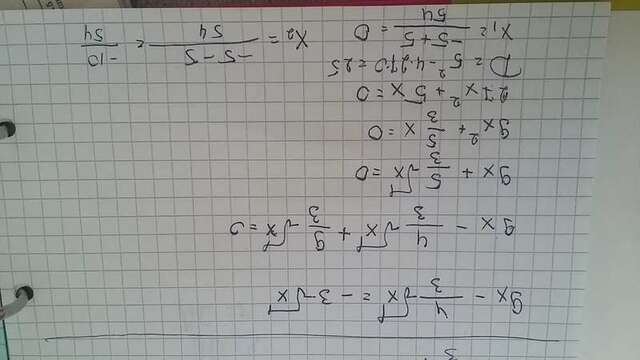 9x - 4/3 √x = - 3 √x
9x - 4/3 √x + 9/3 √x = 0
9x + 5/3 √x = 0
9x² + 5/3 x = 0
27x² + 5x = 0
D = 5² - 4·27·0 = 25
x₁ = (-5+5)/54 = 0
x₂ = (-5-5)/54 = -10/54